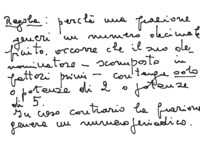 Regola: perchè una frazione
generi un numero decimale
finito, occorre che il suo de-
nominatore - scomposto in
fattori primi - contenga solo
potenze di 2 o potenze
di 5.
In caso contrario la frazione
genera un numero periodico.